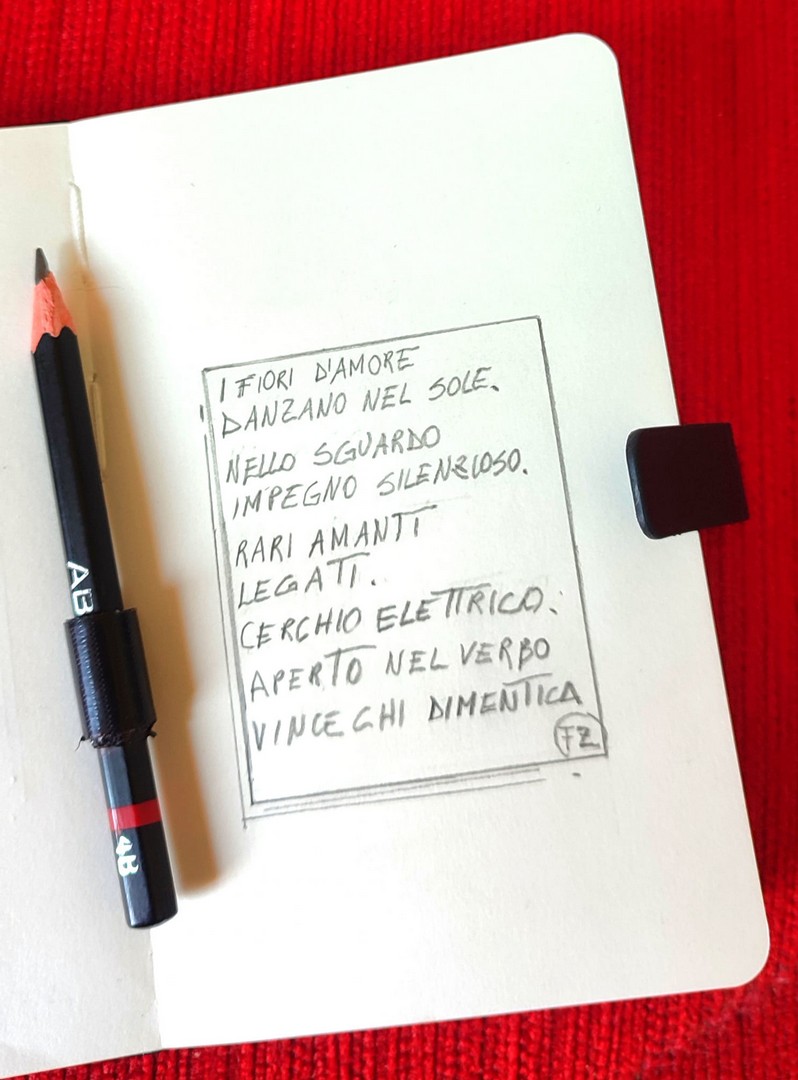 I FIORI D'AMORE
DANZANO NEL SOLE.
NELLO SGUARDO
IMPEGNO SILENZIOSO.
RARI AMANTI
LEGATI.
CERCHIO ELETTRICO.
APERTO NEL VERBO
VINCE CHI DIMENTICA
FZ
AB
4B